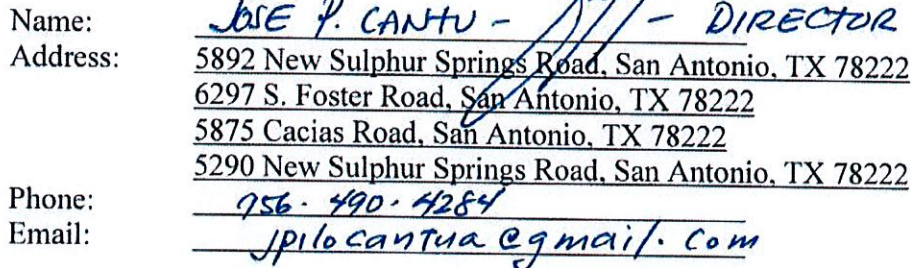 Name: JOSE P. CANTU - - DIRECTOR
Address: 5892 New Sulphur Springs Road, San Antonio, TX 78222
6297 S. Foster Road, San Antonio, TX 78222
5875 Cacias Road, San Antonio, TX 78222
5290 New Sulphur Springs Road, San Antonio, TX 78222
Phone: 956. 490. 4284
Email: jpilocantua@gmail.com